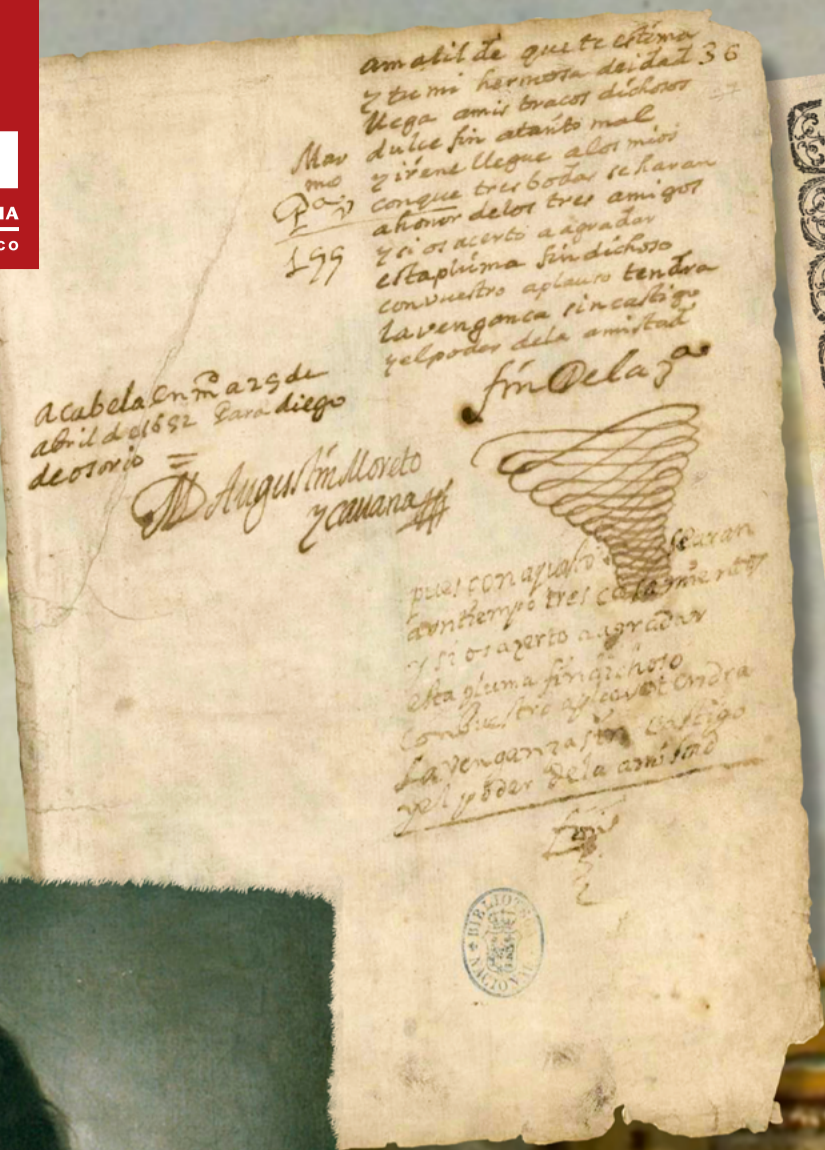 IA
CO
amatil de que te estima
y tu mi hermosa deidad 36
llega amis bracos dichosos
dulce fin atanto mal
y irene llegue alos mios
conque tres bodas se haran
ahonor delos tres amigos
y si os acerto a agradar
estapluma fin dichoso
convuestro aplauso tendra
lavenganca sin castigo
yelpoder dela amistad
fin Dela 3ª
Mar
mo
199
acabela en m a 25 de
abril de 1652 Para diego
de osorio
Augustin Moreto
y cavana
pues con
auntiempo tres casamientos
y si os azerto aagradar
esta pluma fin dichoso
Conbuestro aplauso tendra
La venganza sin castigo
yel poder dela amistad
fin
BIBLIOTECA NACIONAL